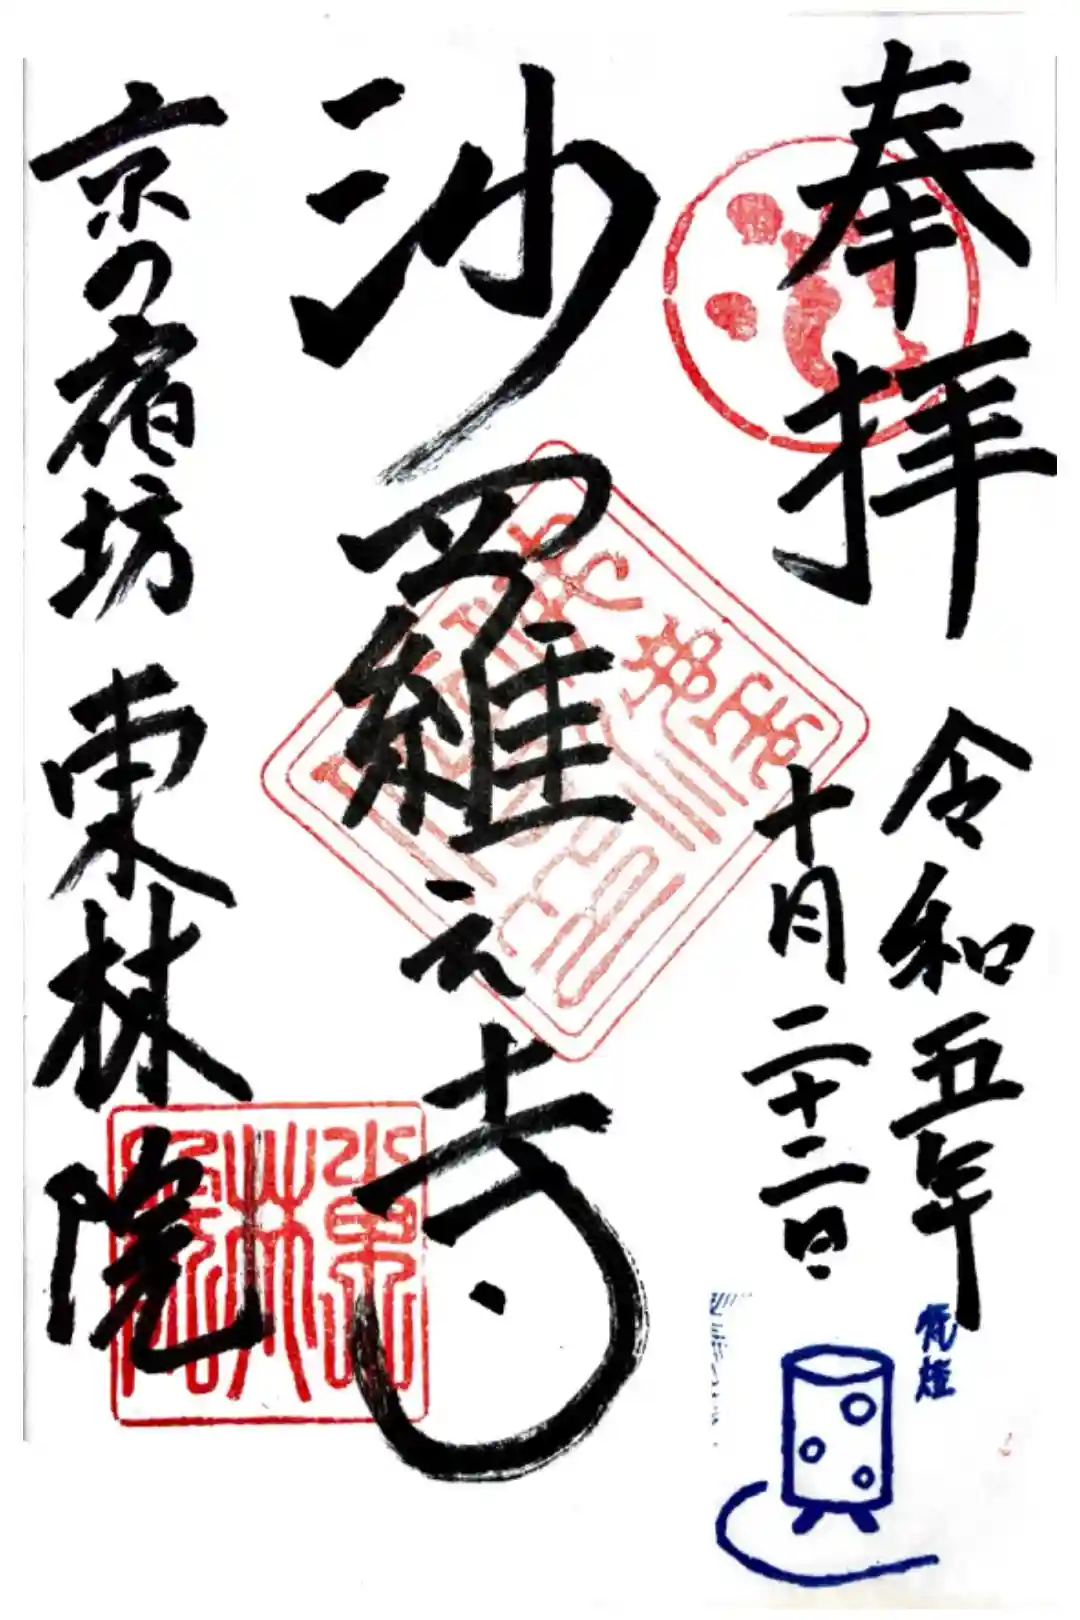 奉拝
令和五年
十月二十二日
沙羅之寺
京の宿坊
東林院
東林院